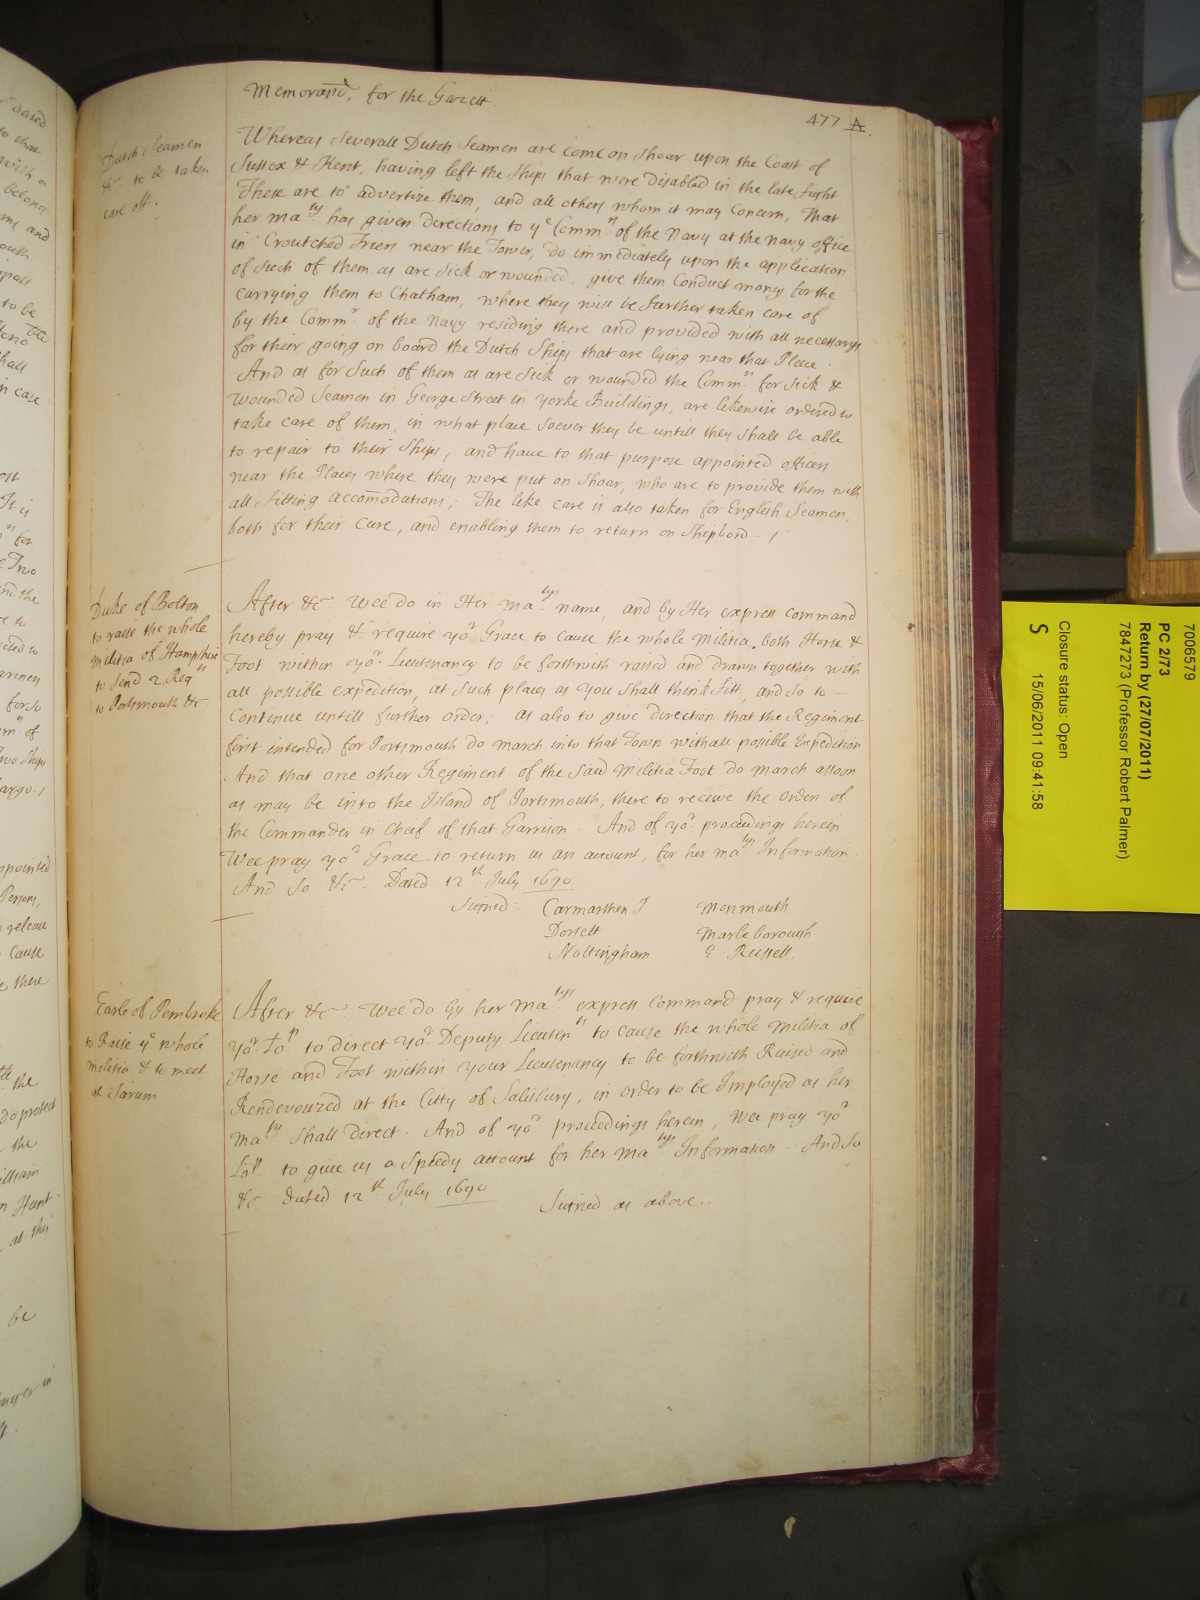 Memorand. for the Gazett
477 A.
Dutch Seamen
&c to be taken
care off.
Whereas Severall Dutch Seamen are come on Shoar upon the Coast of
Sussex & Kent, having left the Ships that were disabled in the late fight
These are to advertize them, and all others whom it may Concern, That
her Ma.ty has given directions to ye Comm.rs of the Navy at the Navy office
in Croutched Friers near the Tower, do immediately upon the application
of Such of them as are Sick or wounded, give them Conduct mony for the
carrying them to Chatham, where they will be further taken care of
by the Comm.r of the Navy residing there and provided with all necessarys
for their going on board the Dutch Ships that are lying near that Place.
And as for Such of them as are Sick or wounded the Comm.rs for Sick &
Wounded Seamen in George Street in Yorke Buildings, are likewise ordered to
take care of them, in what place Soever they be untill they Shall be able
to repair to their Ships, and have to that purpose appointed officers
near the Places where they were put on Shoar, who are to provide them with
all fitting accomodations; The like care is also taken for English Seamen,
both for their Cure, and enabling them to return on Shipbord.
Duke of Bolton
to raise the whole
Militia of Hampshire
to Send 2 Regts
to Portsmouth &c
After &c Wee do in Her Ma.tys name, and by Her express command
hereby pray & require yor Grace to cause the whole Militia, both Horse &
Foot within yor Lieutenancy to be forthwith raised and drawn together with
all possible expedition, at Such places as you Shall think fitt, and so to
Continue untill further order; as also to give direction that the Regiment
first intended for Portsmouth do march into that Town with all possible Expedition
And that one other Regiment of the Said Militia Foot do march assoon
as may be into the Island of Portsmouth, there to receive the Orders of
the Commander in Cheif of that Garrison. And of yor proceedings herein
Wee pray yor Grace to return us an account, for her Ma.tys Information
And So &c. Dated 12th July 1690
Signed: Carmarthen P Monmouth
Dorsett Marleborough
Nottingham E Russell.
Earle of Pembroke
to Raise ye whole
Militia & to meet
at Sarum
After &c Wee do by her Ma.tys express Command pray & require
yor Lo.p to direct yor Deputy Lieutents to cause the whole Militia of
Horse and Foot within your Lieutenancy to be forthwith Raised and
Rendevouzed at the Citty of Salisbury, in order to be Imployed as her
Ma.ty Shall direct. And of yor proceedings herein, Wee pray yor
Lo.p to give us a Speedy account for her Ma.tys Information. And So
&c Dated 12th July 1690 Signed as above.
7006579
PC 2/73
Return by (27/07/2011)
7847273 (Professor Robert Palmer)
Closure status: Open
S 15/06/2011 09:41:58